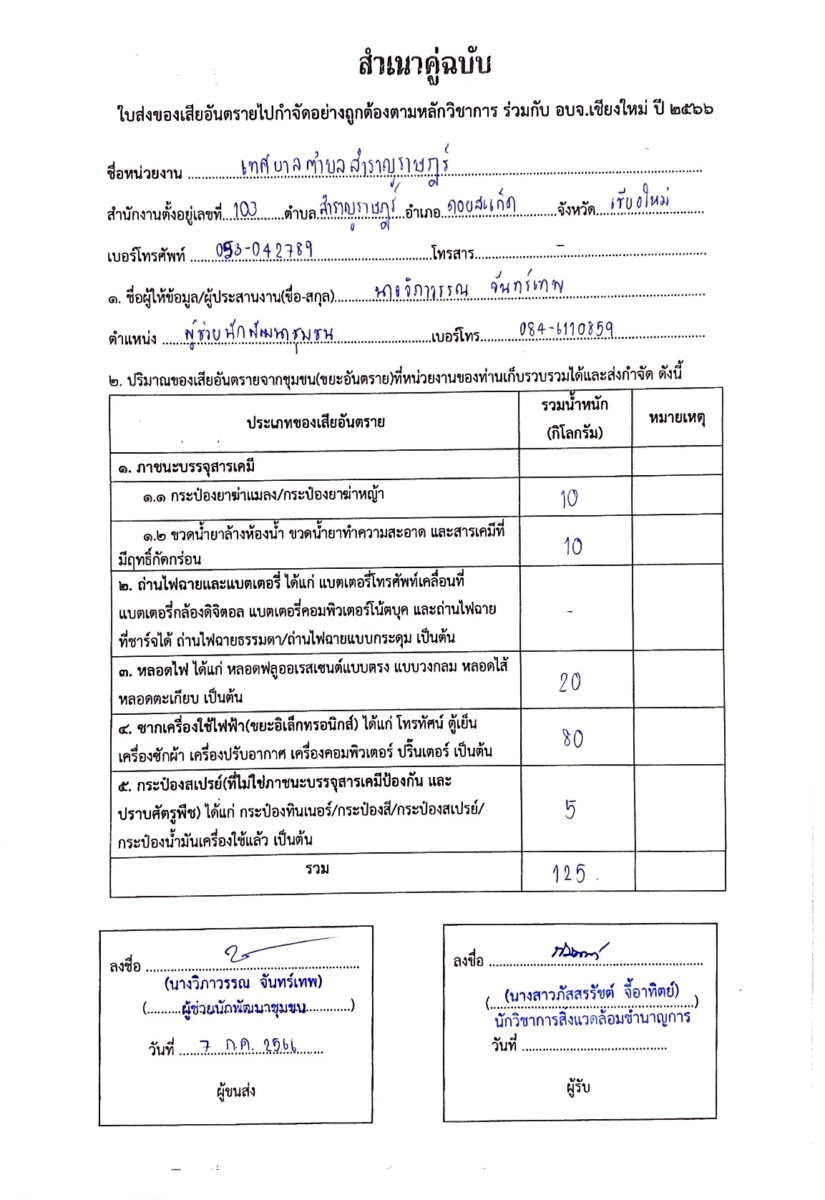 สำเนาคู่ฉบับ
ใบส่งของเสียอันตรายไปกำจัดอย่างถูกต้องตามหลักวิชาการ ร่วมกับ อบจ.เชียงใหม่ ปี ๒๕๖๖
ชื่อหน่วยงาน เทศบาลตำบลสำราญราษฎร์
สำนักงานตั้งอยู่เลขที่ 103 ตำบล สำราญราษฎร์ อำเภอ ดอยสะเก็ด จังหวัด เชียงใหม่
เบอร์โทรศัพท์ 053-042789 โทรสาร -
๑. ชื่อผู้ให้ข้อมูล/ผู้ประสานงาน(ชื่อ-สกุล) นางวิภาวรรณ จันทร์เทพ
ตำแหน่ง ผู้ช่วยนักพัฒนาชุมชน เบอร์โทร 084-6110859
๒. ปริมาณของเสียอันตรายจากชุมชน(ขยะอันตราย)ที่หน่วยงานของท่านเก็บรวบรวมได้และส่งกำจัด ดังนี้
ประเภทของเสียอันตราย รวมน้ำหนัก (กิโลกรัม) หมายเหตุ
๑. ภาชนะบรรจุสารเคมี
๑.๑ กระป๋องยาฆ่าแมลง/กระป๋องยาฆ่าหญ้า 10
๑.๒ ขวดน้ำยาล้างห้องน้ำ ขวดน้ำยาทำความสะอาด และสารเคมีที่
มีฤทธิ์กัดกร่อน 10
๒. ถ่านไฟฉายและแบตเตอรี่ ได้แก่ แบตเตอรี่โทรศัพท์เคลื่อนที่
แบตเตอรี่กล้องดิจิตอล แบตเตอรี่คอมพิวเตอร์โน้ตบุค และถ่านไฟฉาย -
ที่ชาร์จได้ ถ่านไฟฉายธรรมดา/ถ่านไฟฉายแบบกระดุม เป็นต้น
๓. หลอดไฟ ได้แก่ หลอดฟลูออเรสเซนต์แบบตรง แบบวงกลม หลอดไส้
หลอดตะเกียบ เป็นต้น 20
๔. ซากเครื่องใช้ไฟฟ้า(ขยะอิเล็กทรอนิกส์) ได้แก่ โทรทัศน์ ตู้เย็น
เครื่องซักผ้า เครื่องปรับอากาศ เครื่องคอมพิวเตอร์ ปริ๊นเตอร์ เป็นต้น 80
๕. กระป๋องสเปรย์(ที่ไม่ใช่ภาชนะบรรจุสารเคมีป้องกัน และ
ปราบศัตรูพืช) ได้แก่ กระป๋องทินเนอร์/กระป๋องสี/กระป๋องสเปรย์/ 5
กระป๋องน้ำมันเครื่องใช้แล้ว เป็นต้น
รวม 125
ลงชื่อ
(นางวิภาวรรณ จันทร์เทพ)
(ผู้ช่วยนักพัฒนาชุมชน)
วันที่ 7 ก.ค. 2566
ผู้ขนส่ง
ลงชื่อ
(นางสาวภัสสรรัชต์ จี้อาทิตย์)
นักวิชาการสิ่งแวดล้อมชำนาญการ
วันที่
ผู้รับ